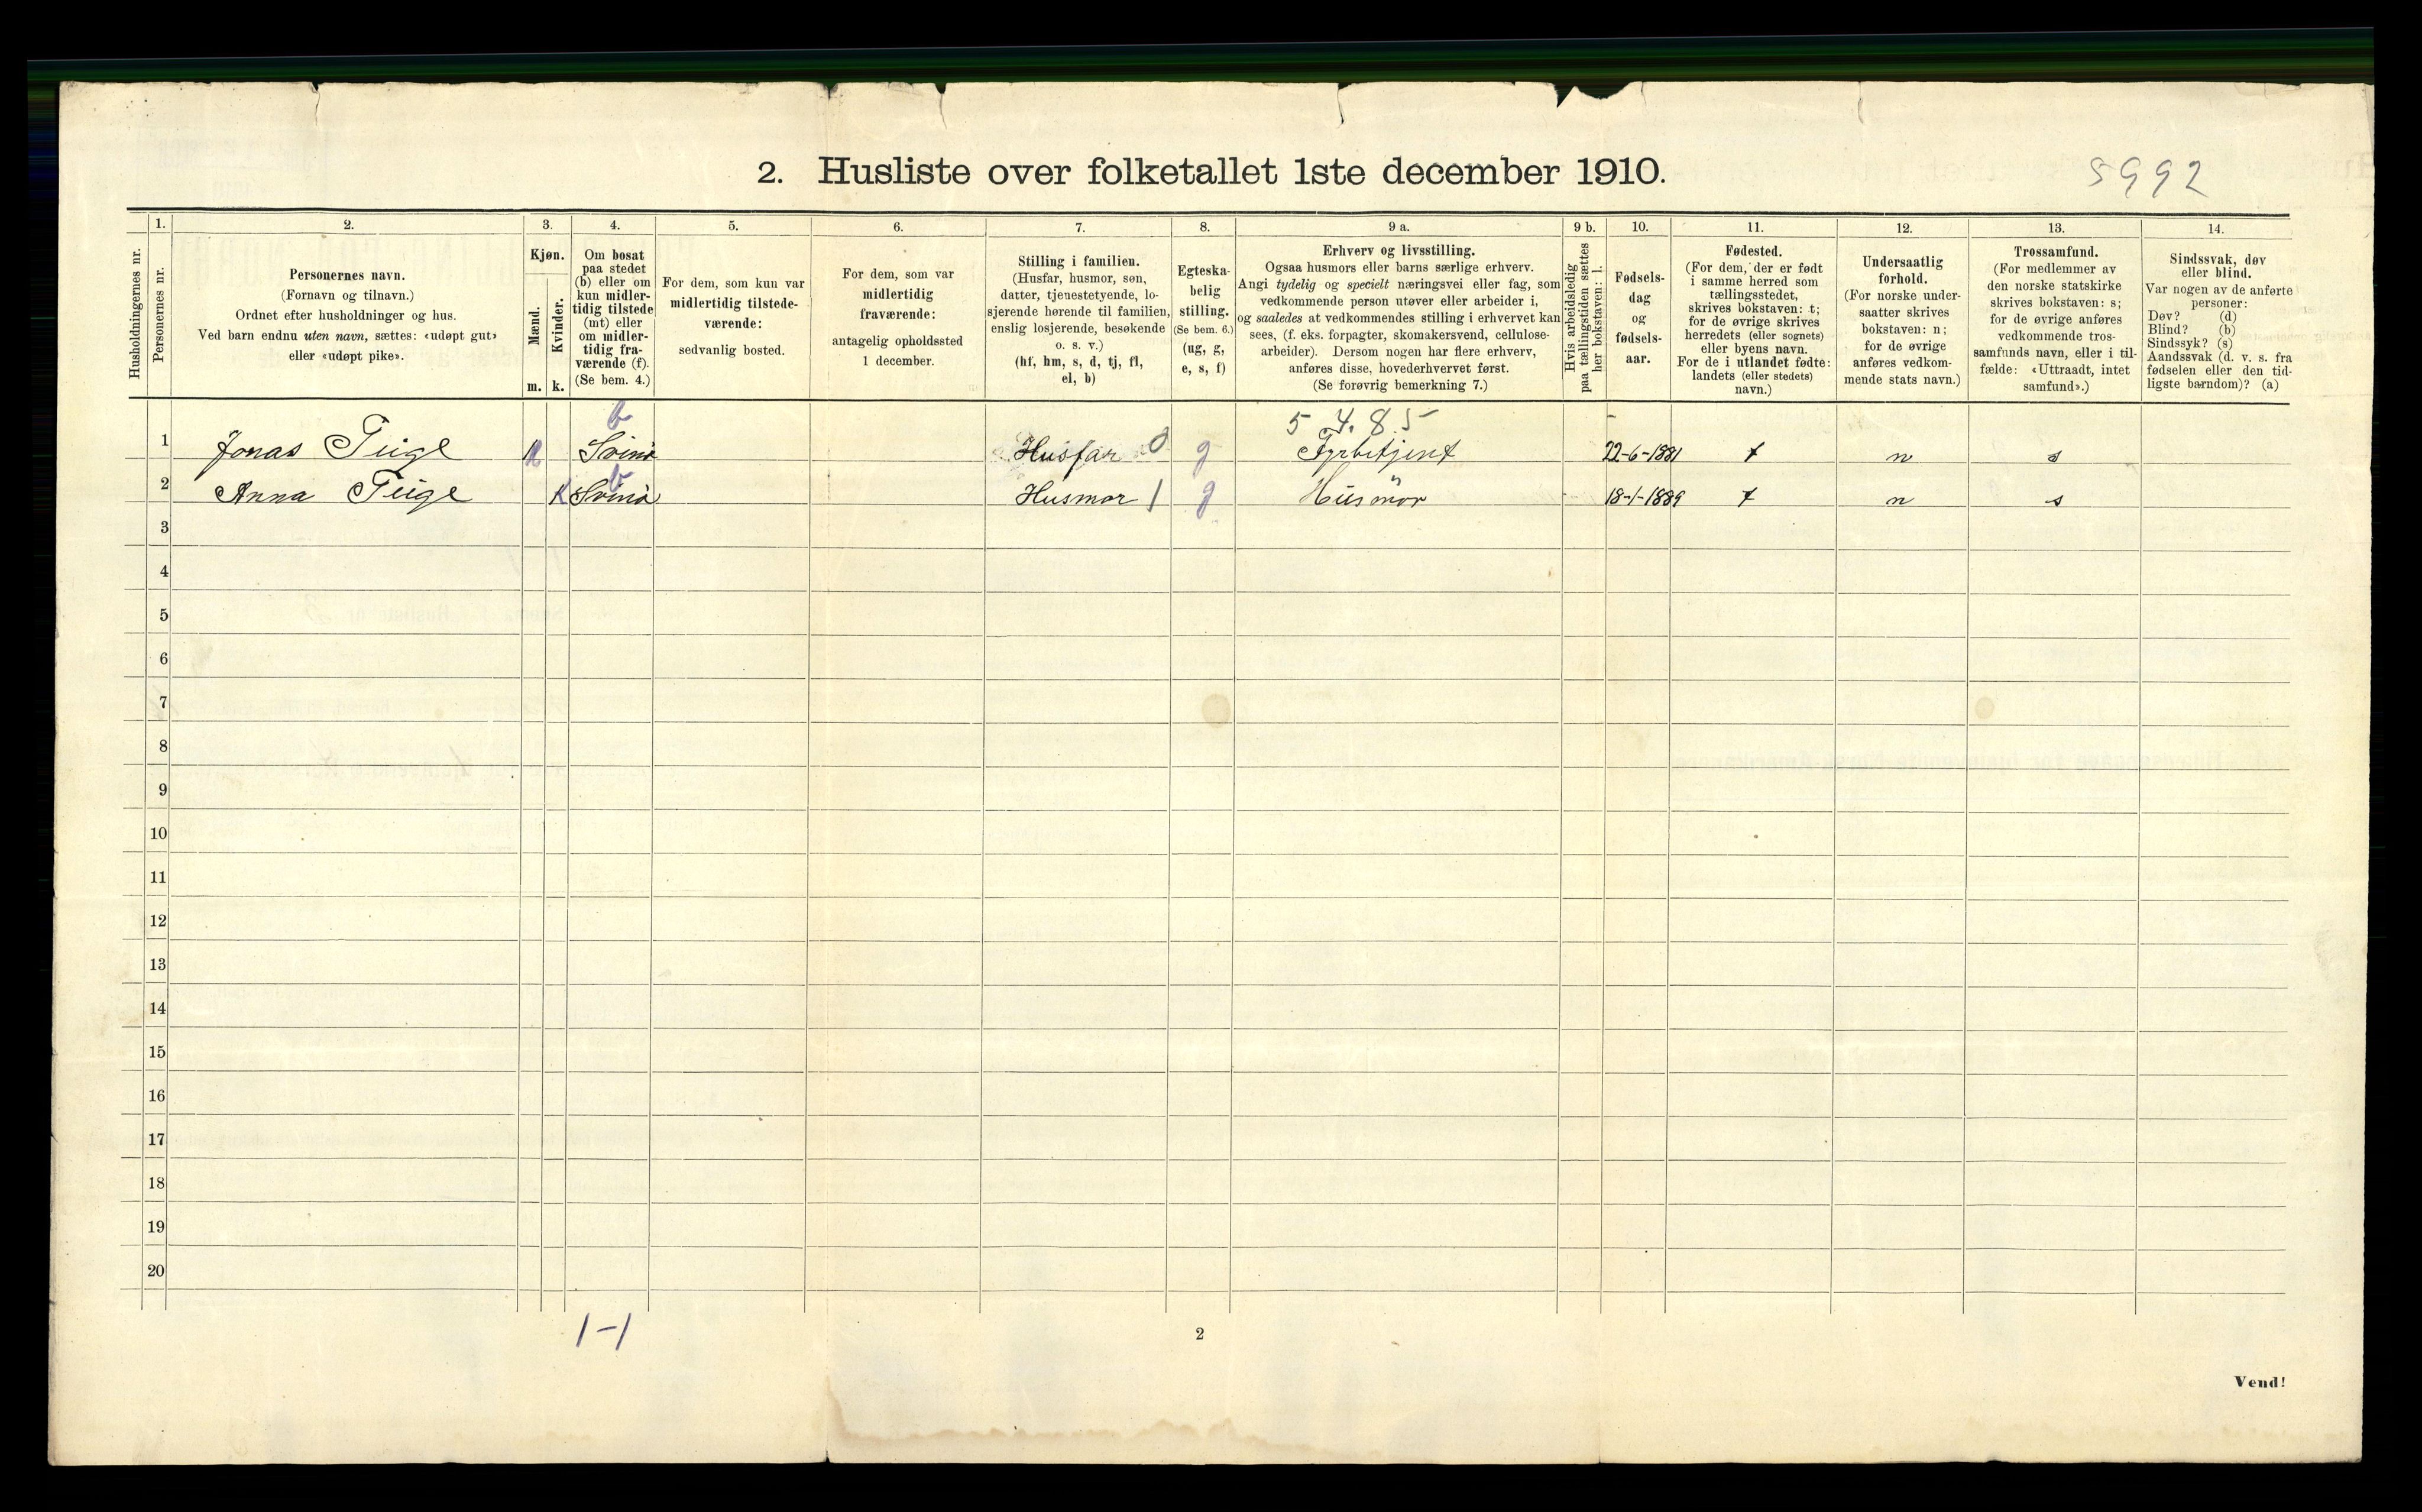 2. Husliste over folketallet 1ste december 1910.
5992
Husholdningernes nr.
1.
Personernes nr.
2.
Personernes navn.
(Fornavn og tilnavn.)
Ordnet efter husholdninger og hus.
Ved barn endnu uten navn, sættes: «udøpt gut»
eller «udøpt pike».
3.
Kjøn.
Mænd.
m.
Kvinder.
k.
4.
Om bosat
paa stedet
(b) eller om
kun midler-
tidig tilstede
(mt) eller
om midler-
tidig fra-
værende (f).
(Se bem. 4.)
5.
For dem, som kun var
midlertidig tilstede-
værende:
sedvanlig bosted.
6.
For dem, som var
midlertidig
fraværende:
antagelig opholdssted
1 december.
7.
Stilling i familien.
(Husfar, husmor, søn,
datter, tjenestetyende, lo-
sjerende hørende til familien,
enslig losjerende, besøkende
o. s. v.)
(hf, hm, s, d, tj, fl,
el, b)
8.
Egteska-
belig
stilling.
(Se bem. 6.)
(ug, g,
e, s, f)
9 a.
Erhverv og livsstilling.
Ogsaa husmors eller barns særlige erhverv.
Angi tydelig og specielt næringsvei eller fag, som
vedkommende person utøver eller arbeider i,
og saaledes at vedkommendes stilling i erhvervet kan
sees, (f. eks. forpagter, skomakersvend, cellulose-
arbeider). Dersom nogen har flere erhverv,
anføres disse, hovederhvervet først.
(Se forøvrig bemerkning 7.)
9 b.
Hvis arbeidsledig
paa tællingstiden sættes
her bokstaven: l.
10.
Fødsels-
dag
og
fødsels-
aar.
11.
Fødested.
(For dem, der er født
i samme herred som
tællingsstedet,
skrives bokstaven: t;
for de øvrige skrives
herredets (eller sognets)
eller byens navn.
For de i utlandet fødte:
landets (eller stedets)
navn.)
12.
Undersaatlig
forhold.
(For norske under-
saatter skrives
bokstaven: n;
for de øvrige
anføres vedkom-
mende stats navn.)
13.
Trossamfund.
(For medlemmer av
den norske statskirke
skrives bokstaven: s;
for de øvrige anføres
vedkommende tros-
samfunds navn, eller i til-
fælde: «Uttraadt, intet
samfund».)
14.
Sindssvak, døv
eller blind.
Var nogen av de anførte
personer:
Døv? (d)
Blind? (b)
Sindssyk? (s)
Aandssvak (d. v. s. fra
fødselen eller den tid-
ligste barndom)? (a)
b 5 4.85
1 Jonas Teige Svinö Husfar 0 g Fyrbetjent 22-6-1881 t n s
b
2 Anna Teige K Svinö Husmor 1 g Husmor 18-1-1889 t n s
3
4
5
6
7
8
9
10
11
12
13
14
15
16
17
18
19
20
1-1
2
Vend!